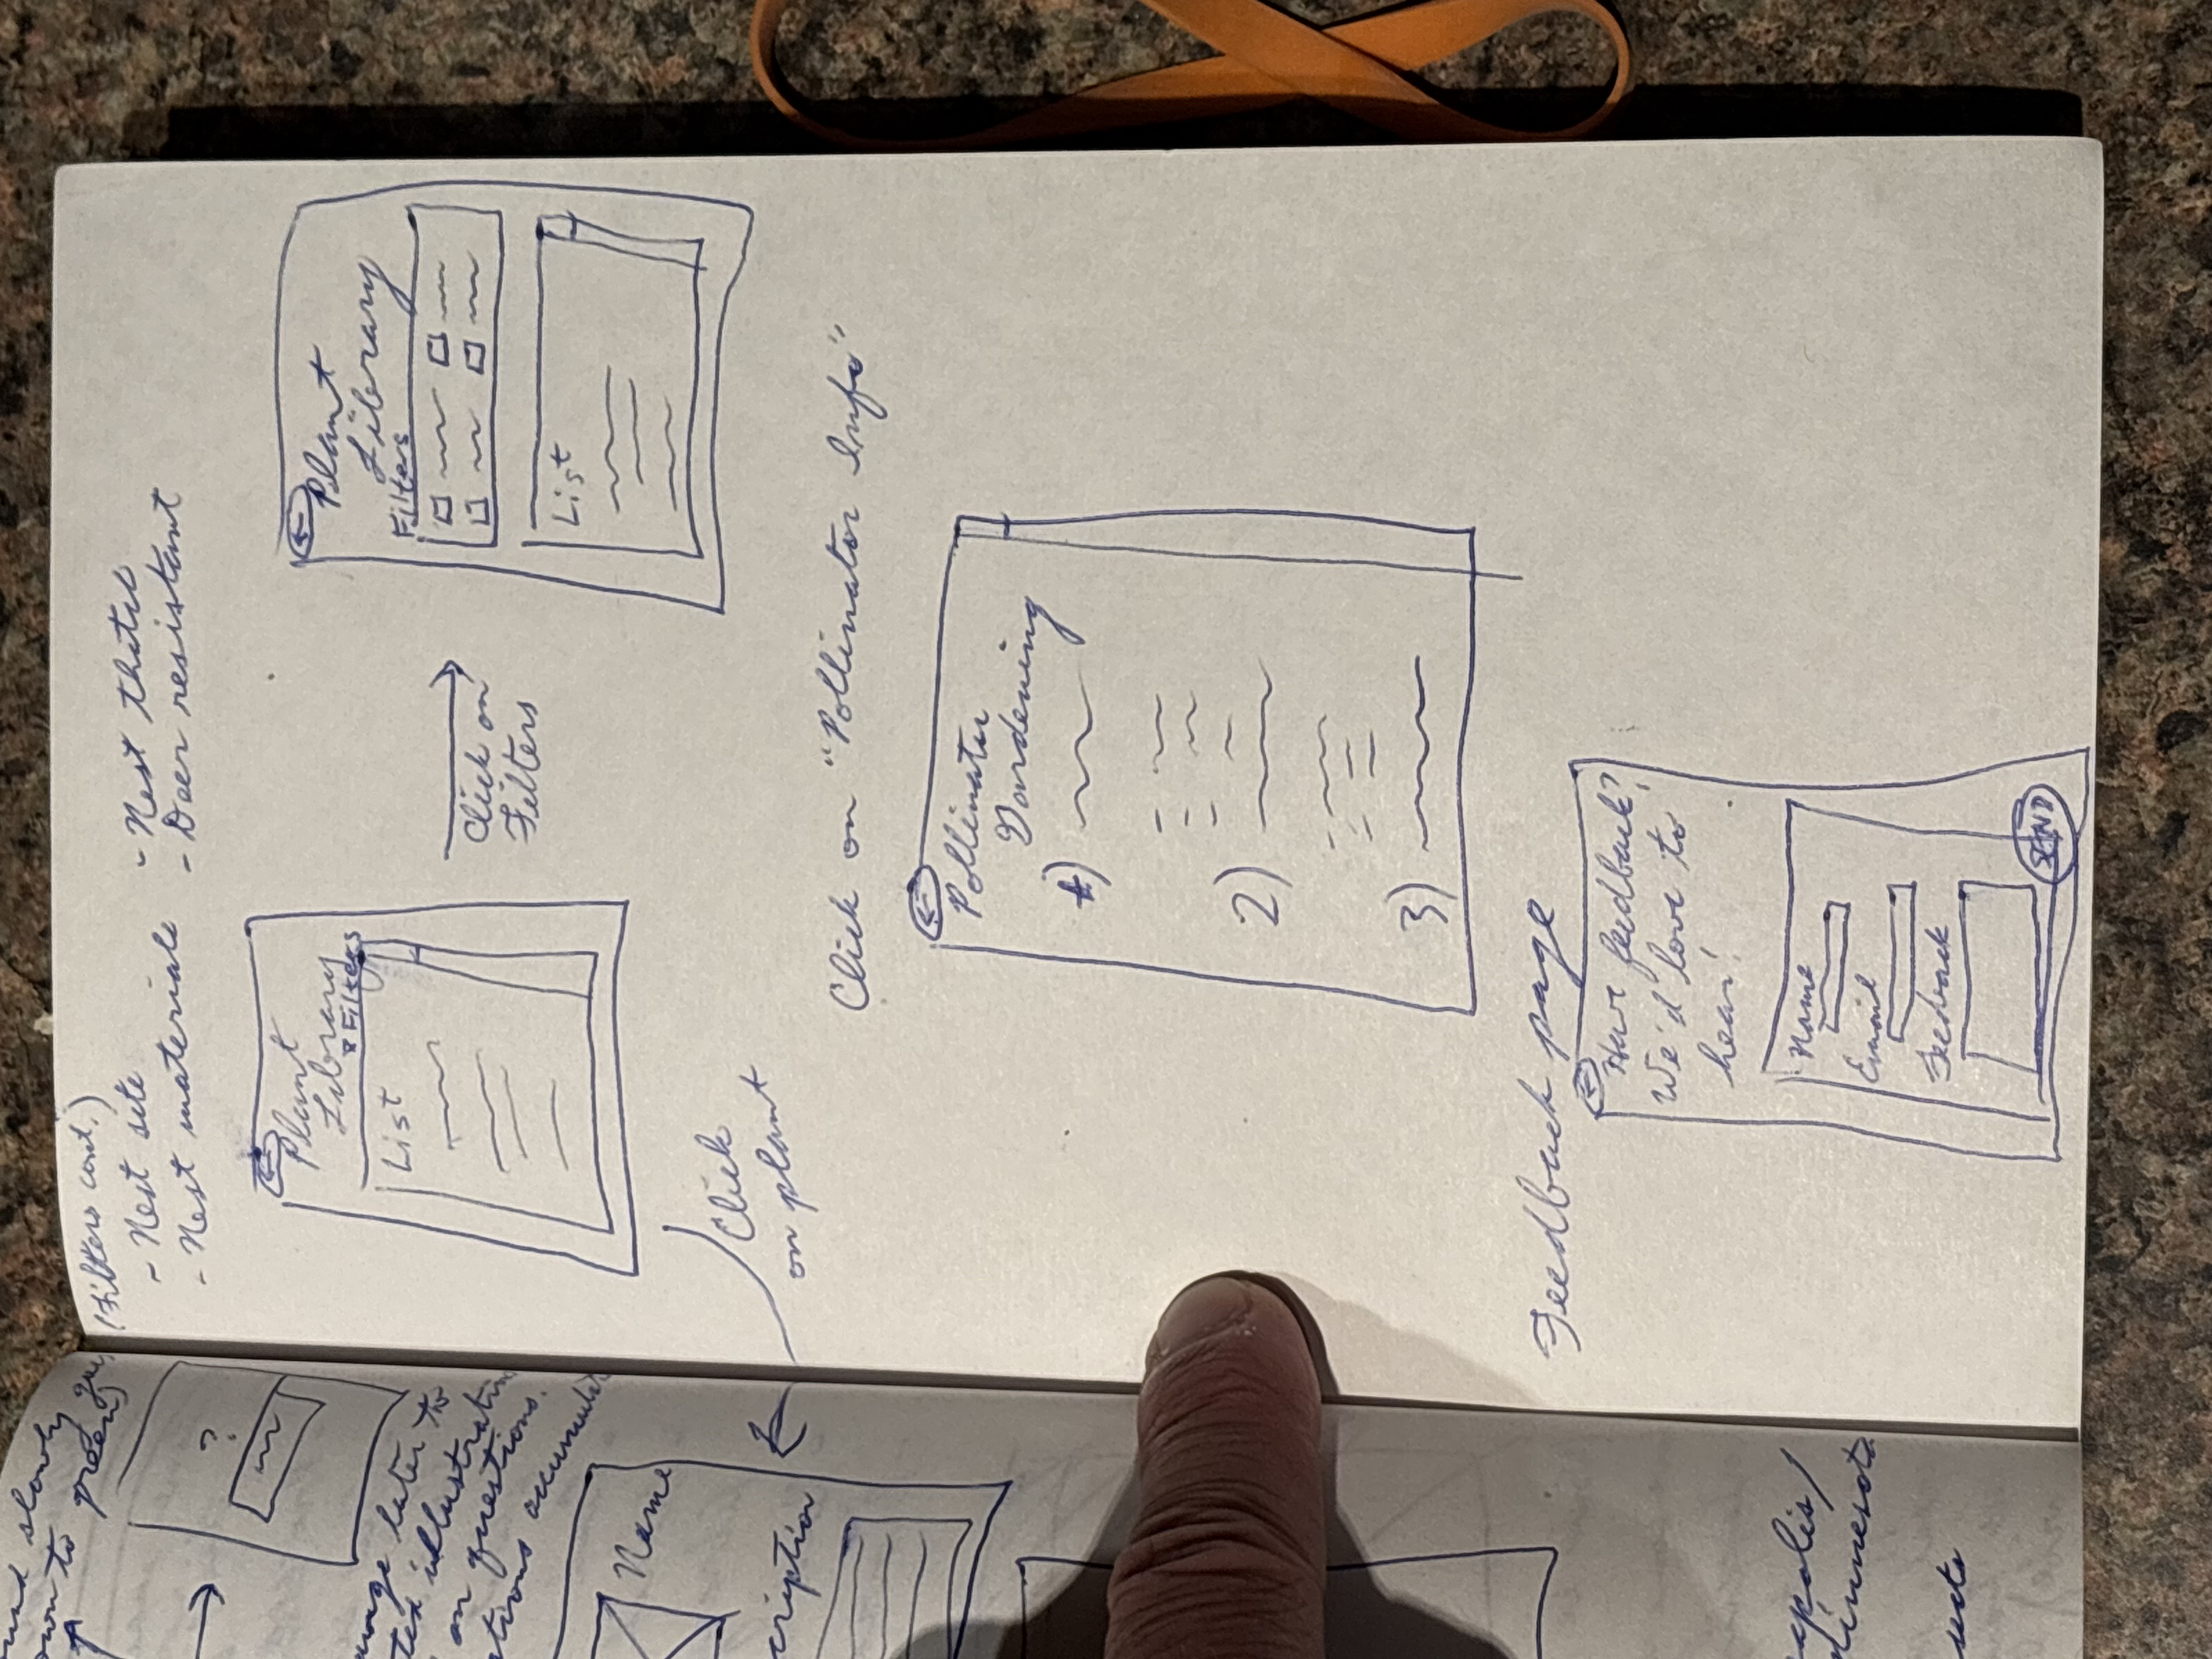 und slowly
own to green)
?
later to
illustration
on questions.
Name
cription
apolis/
innesota
(Filters cont.)
- Nest site
- Nest materials
- Nest
- Deer resistant
←
Plant
Library
Filters
List
Click on
Filters
←
Plant
Library
Filters
List
Click
on plant
Click on "Pollinator Info"
←
Pollinator
Gardening
2)
3)
Feedback page
←
Have feedback?
We'd love to
hear!
Name
Email
Feedback
SEND